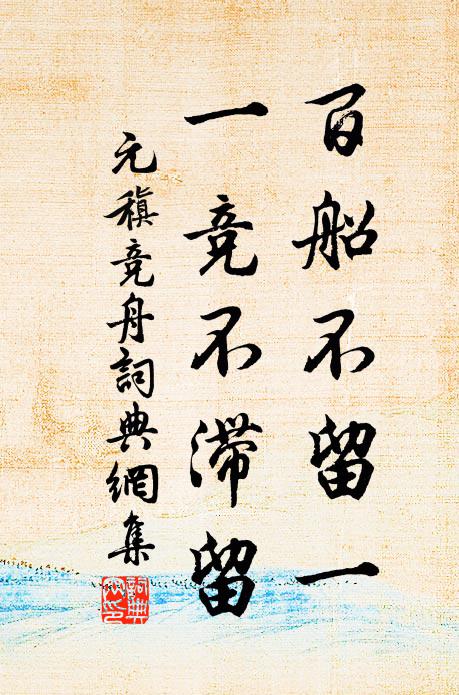 百船不留一
一竞不滞留
元稹竞舟詞典網集
詞典